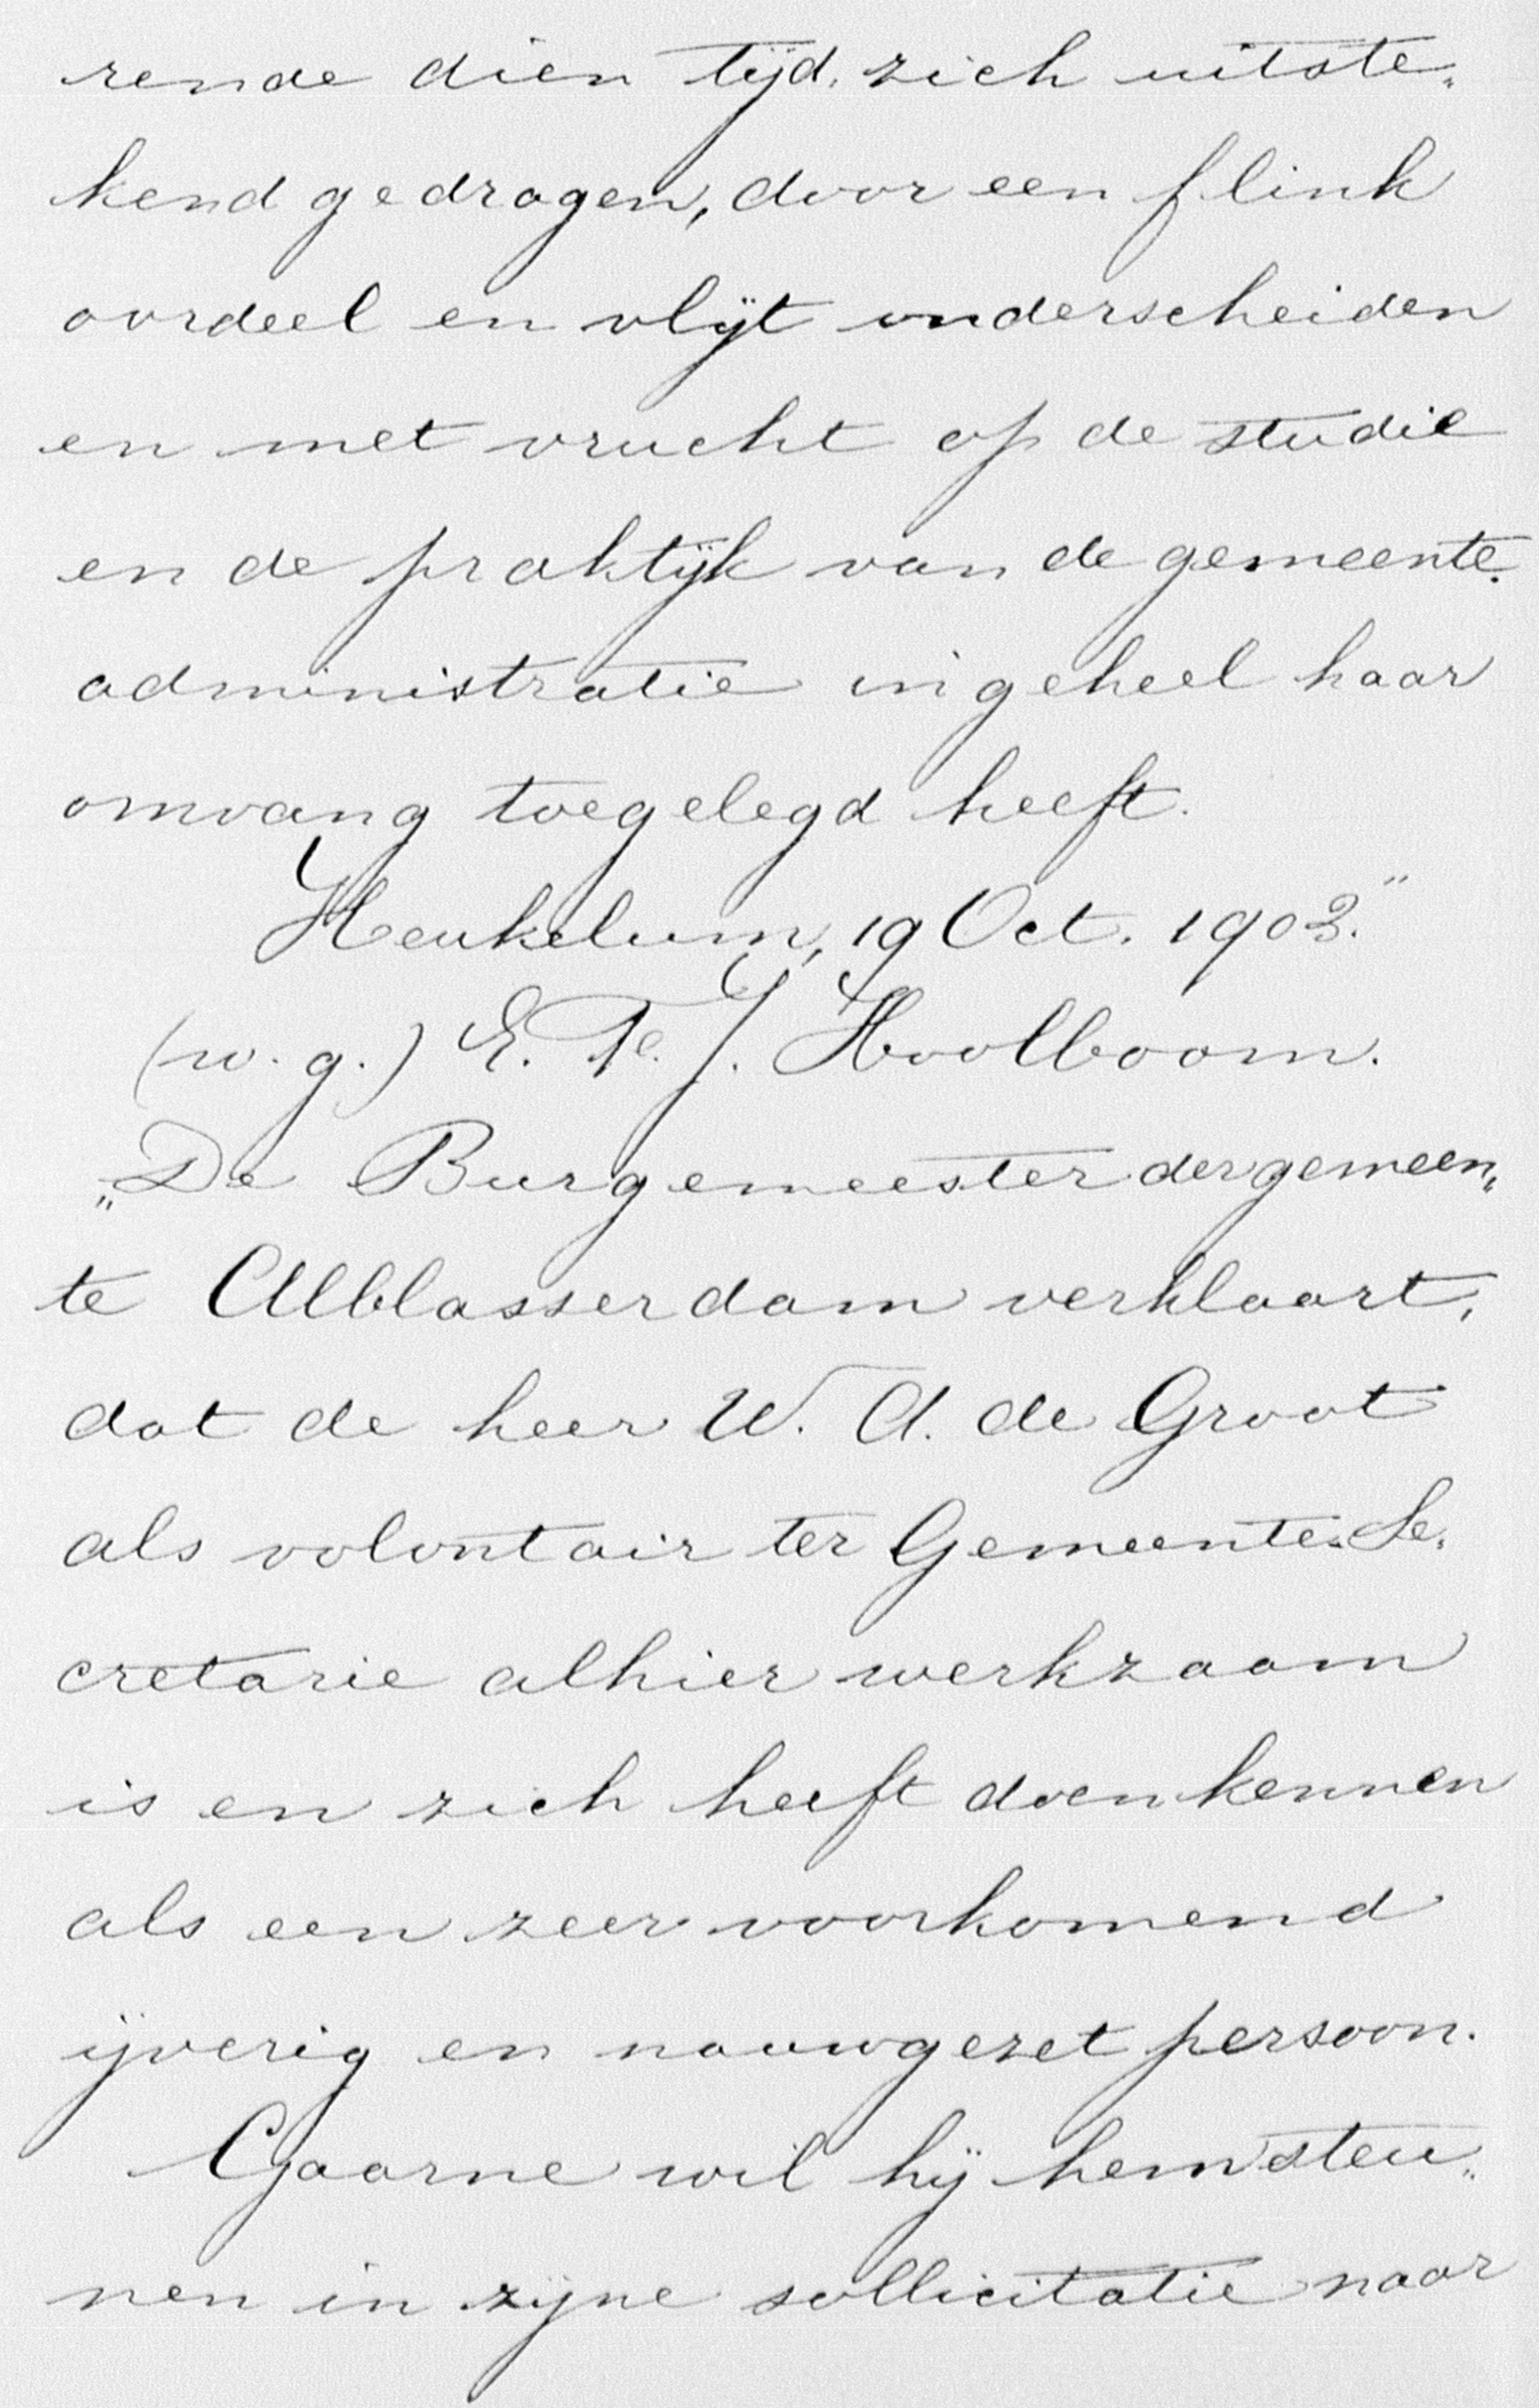 rende dien tijd, zich uitste„
kend gedragen, door een flink
oordeel en vlijt onderscheiden
en met vrucht op de studie
en de praktijk van de gemeente„
administratie in geheel haar
omvang toegelegd heeft.
Heukelum, 19 Oct. 1903."
(w. g.) E. F. J. Hoolboom.
„De Burgemeester der gemeen„
te Alblasserdam verklaart,
dat de heer W. A. de Groot
als volontair ter Gemeente-Se„
cretarie alhier werkzaam
is en zich heeft doen kennen
als een zeer voorkomend
ijverig en nauwgezet persoon.
Gaarne wil hij hem steu„
nen in zijne sollicitatie naar